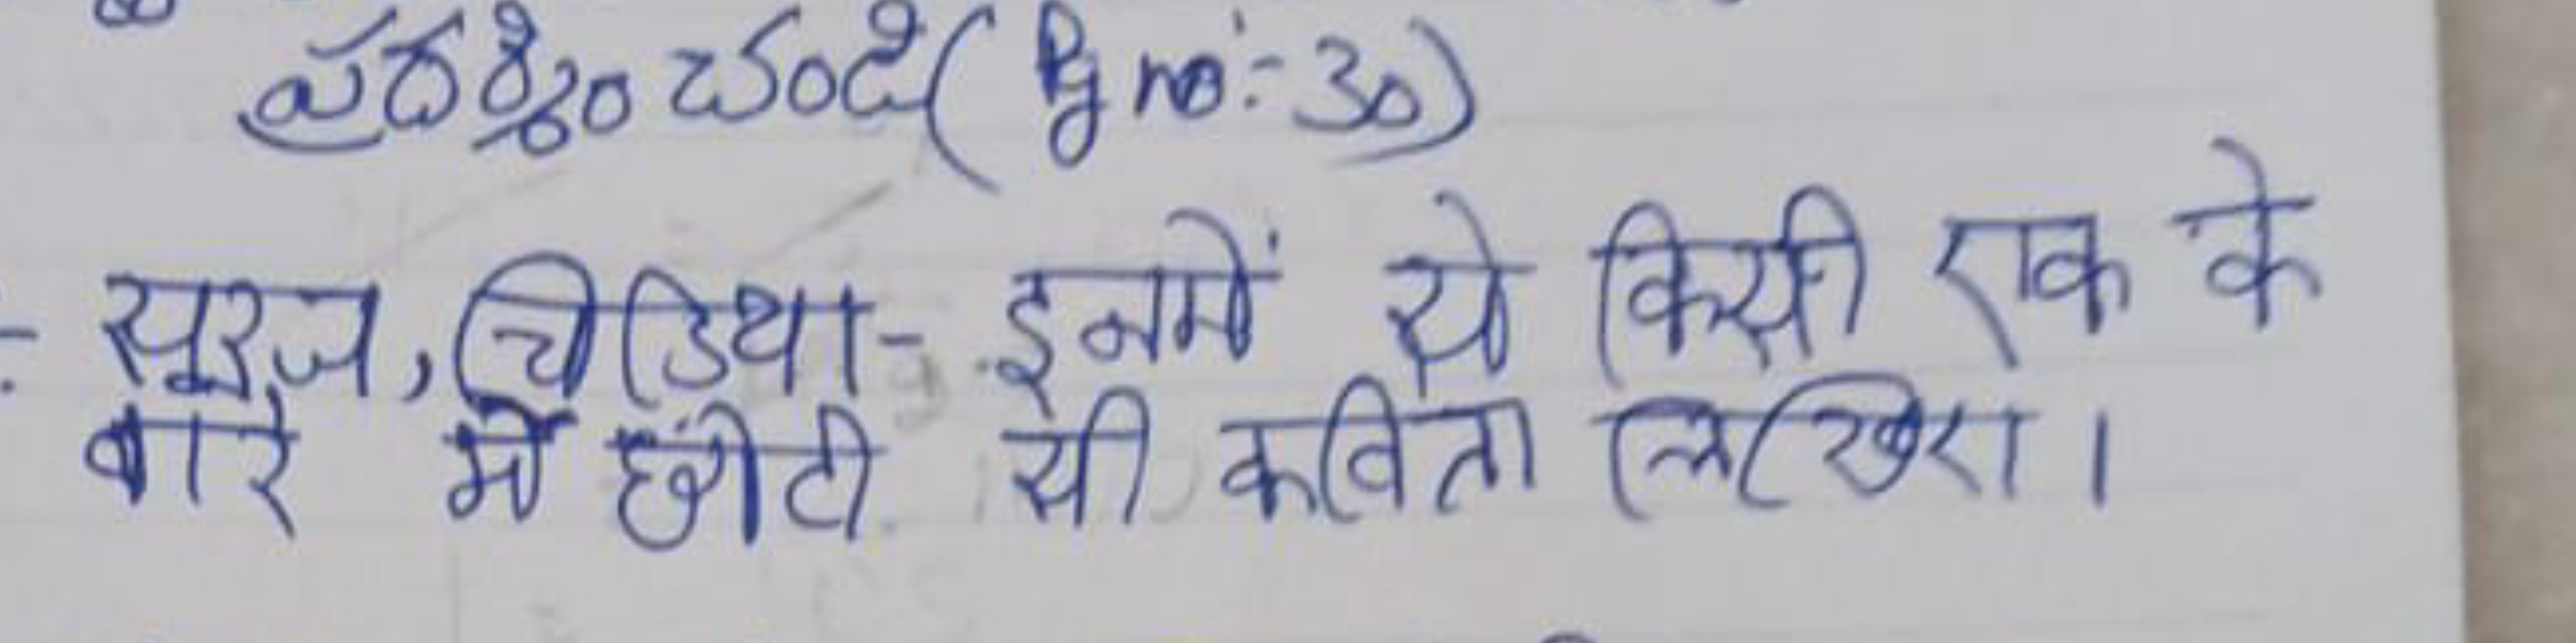 ప్రదర్శించండి( Pg no:- 30)
:- सूरज, चिडिया- इनमें से किसी एक के
बारे में छोटी सी कविता लिखिए।